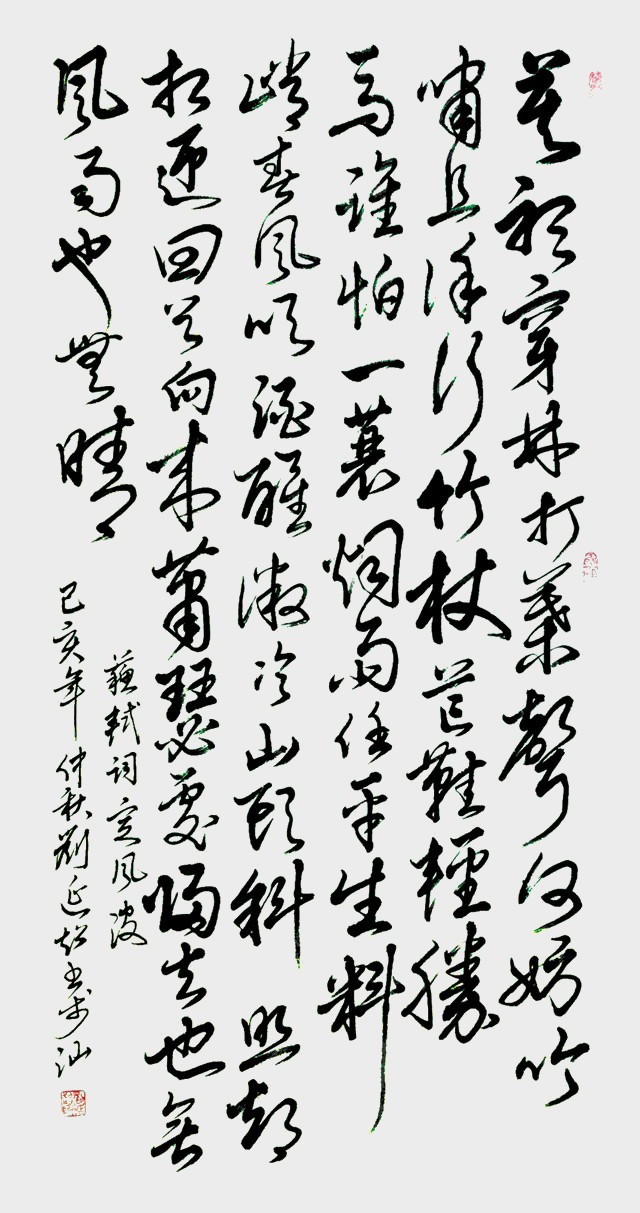 莫聽穿林打葉聲何妨吟
嘯且徐行竹杖芒鞋輕勝
馬誰怕一蓑烟雨任平生料
峭春風吹酒醒微冷山頭斜照却
相迎回首向來蕭瑟處歸去也無
風雨也無晴
蘇軾詞定風波
己亥年仲秋劉延超書汕